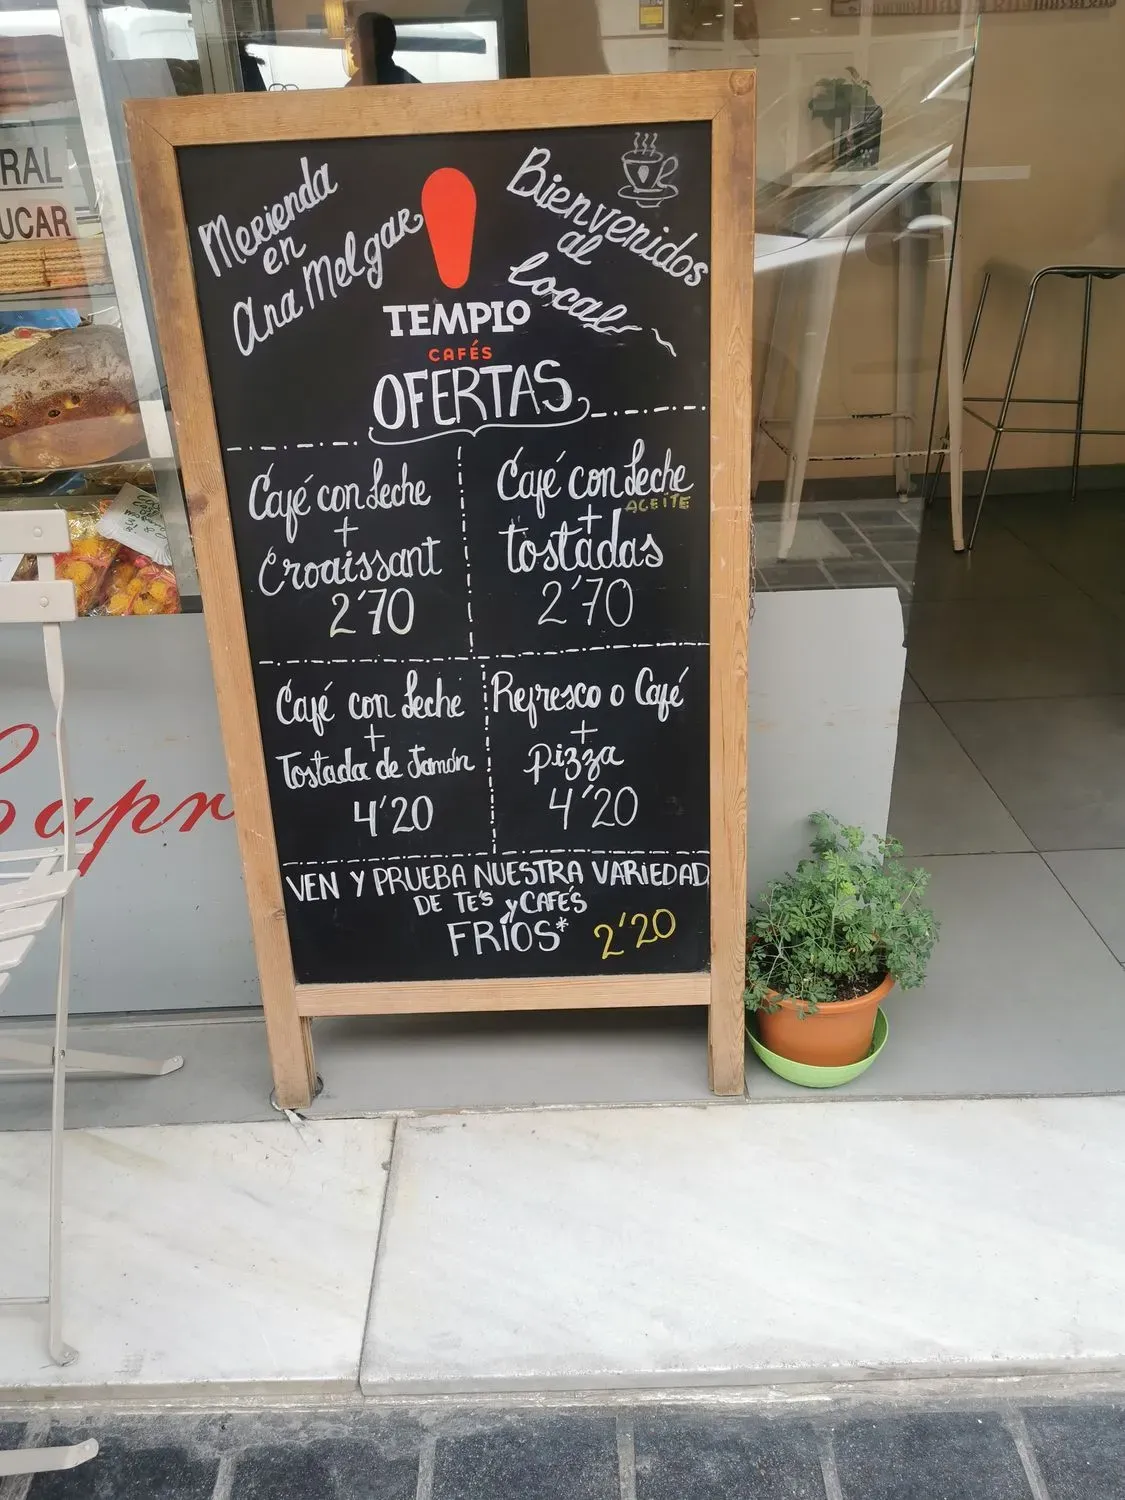 RAL
UCAR
Merienda
en
Ana Melgar
Bienvenidos
al
local
TEMPLO
CAFÉS
OFERTAS
Café con leche
+
Croaissant
2'70
Café con leche
ACEITE
+
tostadas
2'70
Café con leche
+
Tostada de Jamón
4'20
Refresco o Café
+
pizza
4'20
VEN Y PRUEBA NUESTRA VARIEDAD
DE TE'S y CAFÉS
FRÍOS* 2'20
Capr